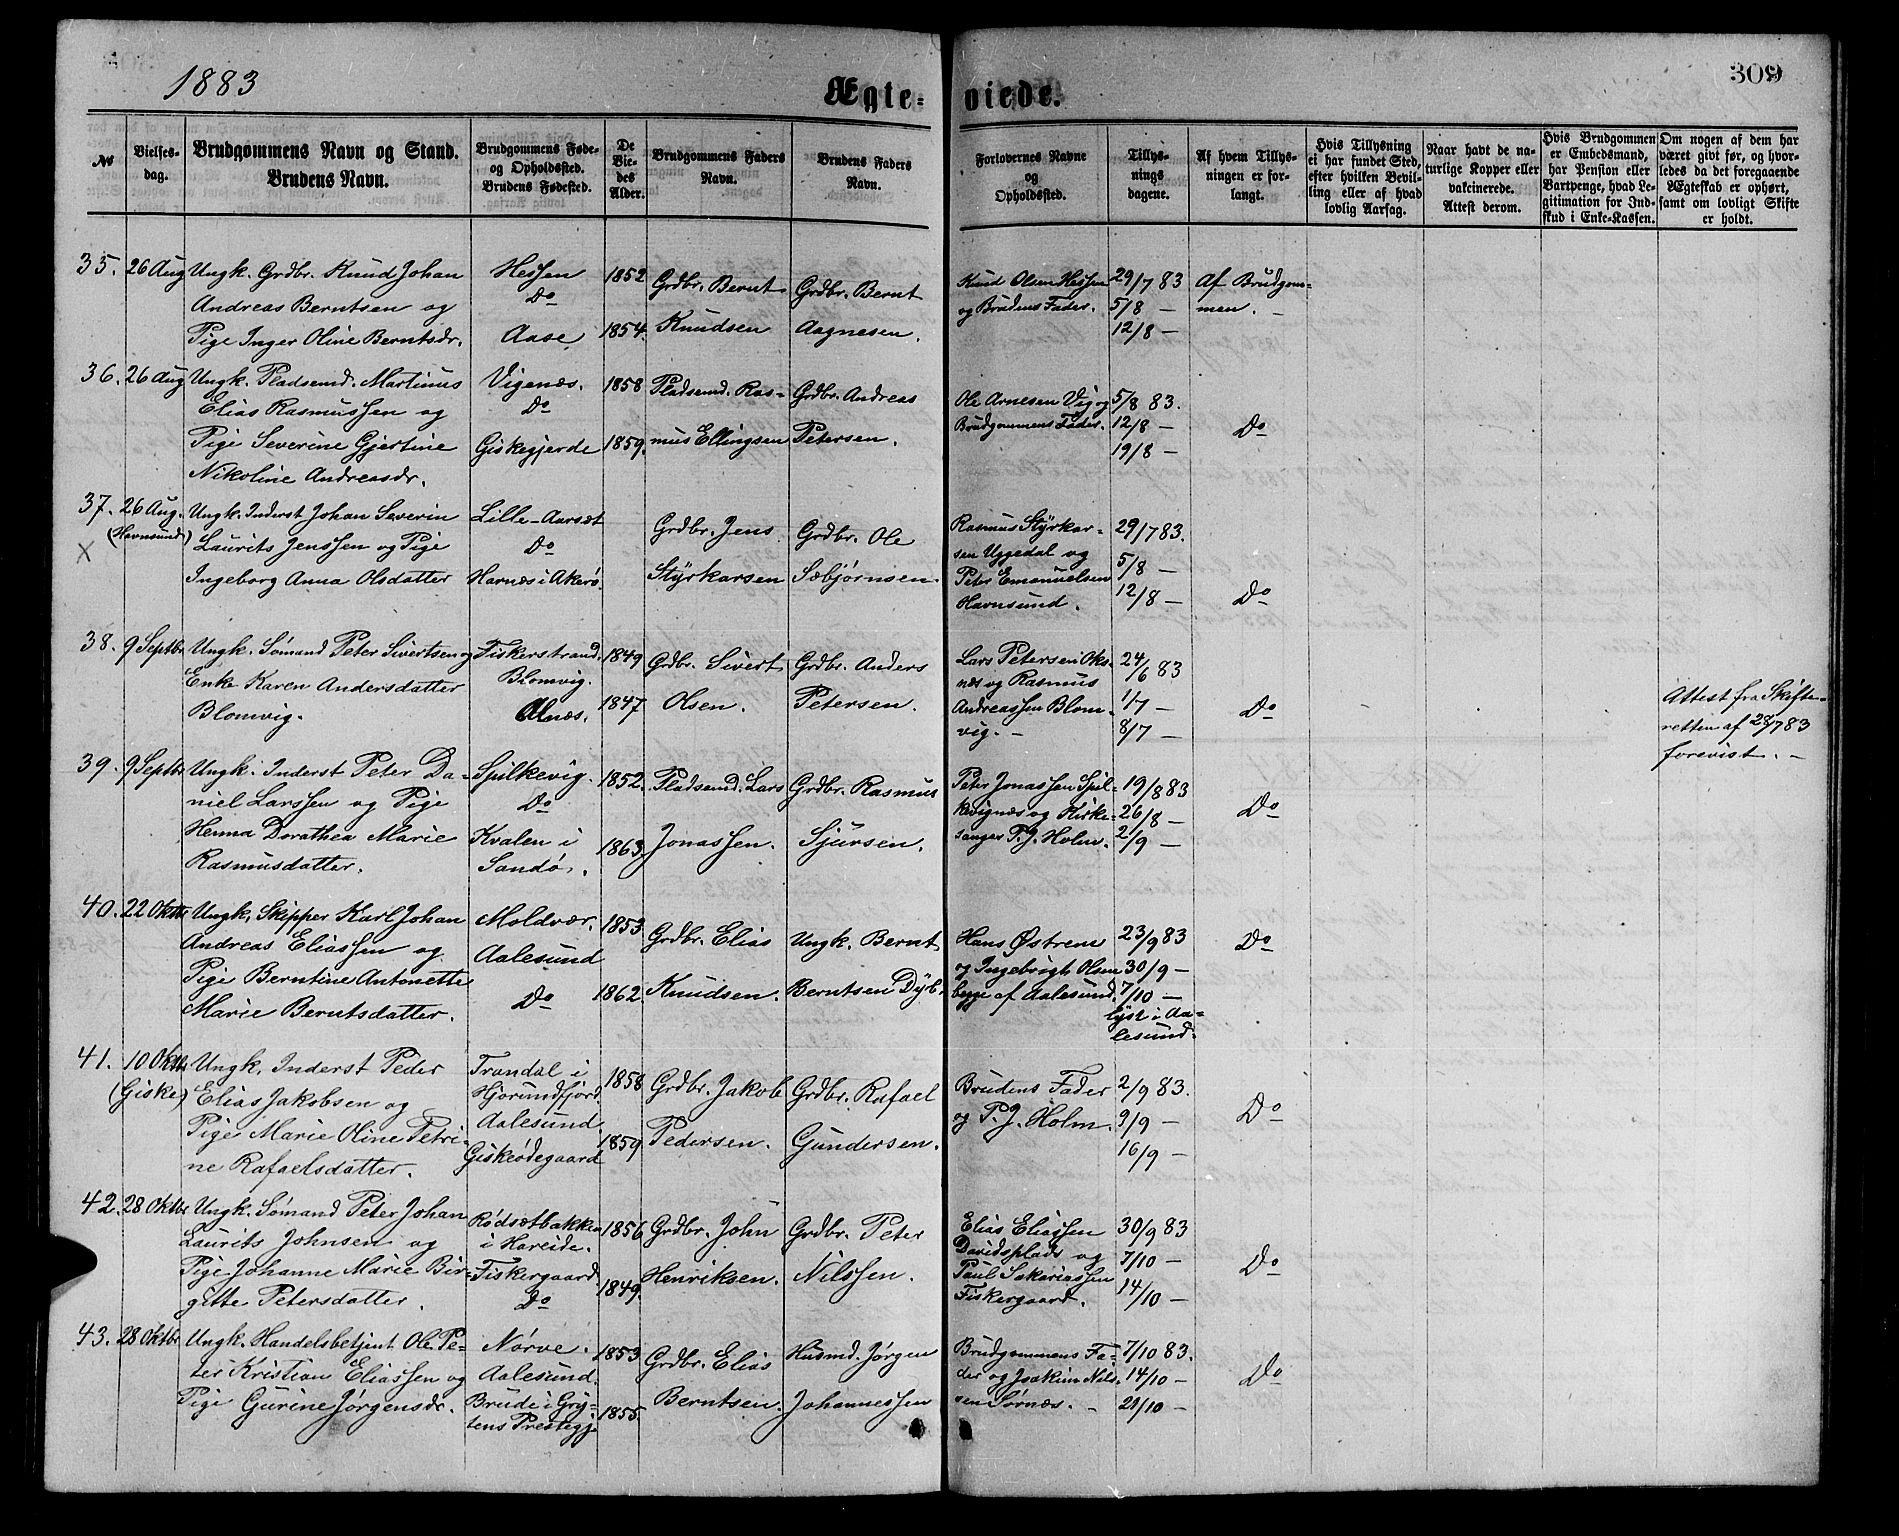 1883
Ægte-viede.
309
№
Vielses-dag.
Brudgommens Navn og Stand.
Brudens Navn.
Brudgommens Føde-
og Opholdssted.
Brudens Fødested.
De
Vie-
des
Alder.
Brudgommens Faders
Navn.
Brudens Faders
Navn.
Forlovernes Navne
og
Opholdssted.
Tillys-
nings
dagene.
Af hvem Tillys-
ningen er for-
langt.
Hvis Tillysning
ei har fundet Sted,
efter hvilken Bevil-
ling eller af hvad
lovlig Aarsag.
Naar havt de na-
turlige Kopper eller
vakcinerede.
Attest derom.
Hvis Brudgommen
er Embedsmand,
har Pension eller
Vartpenge, hvad Le-
gitimation for Ind-
skud i Enke-Kassen.
Om nogen af dem har
været givt før, og hvor-
ledes da det foregaaende
Ægteskab er ophørt,
samt om lovligt Skifte
er holdt.
35. 26 Aug Ungk. Grdbr. Knud Johan Hessen 1852 Grdbr. Bernt Grdbr. Bernt Knud Olsen Hessen 29/7 83 Af Brudgom-
Andreas Berntsen og Do og Brudens Fader. 5/8 — men. —
Pige Inger Oline Berntsdr. Aase 1854. Knudsen Aagnesen. 12/8 —
36. 26 Aug Ungk. Pladsemd. Martinus Vigenæs. 1858 Pladsemd. Ras- Grdbr. Andreas Ole Arnesen Vig og 5/8 83.
Elias Rasmussen og Do Brudgommens Fader. 12/8 — Do
Pige Severine Gjertine Giskegjerde 1859. mus Ellingsen Petersen. 19/8 —
Nikoline Andreasdr.
37. 26 Aug. Ungk. Inderst Johan Severin Lille-Aarsæt Grdbr. Jens Grdbr. Ole Rasmus Styrkar- 29/7 83.
(Havnsund) Laurits Jenssen og Pige Do sen Uggedal og 5/8 —
X Ingeborg Anna Olsdatter Harnæs i Akerø. Styrkarsen Sæbjørnsen. Peter Emanuelsen 12/8 — Do
Havnsund.
38. 9 Septbr Ungk. Sømand Peter Sivertsen og Fiskerstrand. 1849 Grdbr. Sivert Grdbr. Anders Lars Petersen Oks- 24/6 83
Enke Karen Andersdatter Blomvig. næs og Rasmus 1/7 — Attest fra Skifte-
Blomvig. Alnæs. 1847 Olsen. Petersen. Andreassen Blom- 8/7 — Do retten af 28/7 83
vig. — forevist. —
39. 9 Septbr Ungk. Inderst Peter Da- Spilkevig. 1852. Pladsemd. Lars Grdbr. Rasmus Peter Jonassen Spil- 19/8 83
niel Larssen og Pige Do kevignæs og Kirke- 26/8 — Do
Henna Dorathea Marie Kvalen i 1863. Jonassen. Sjursen. sanger P. J. Holm. 2/9 —
Rasmusdatter. Sandø.
40. 22 Oktbr Ungk. Skipper Karl Johan Moldvær. 1853. Grdbr. Elias Ungk. Bernt Hans Østrem 23/9 83 Do
Andreas Eliassen og Aalesund og Ingebrigt Olsen 30/9 —
Pige Berntine Antonette Do 1862. Knudsen. Berntsen Dyb. begge af Aalesund. 7/10 —
Marie Berntsdatter. lyst i Aa-
lesund.
41. 10 Oktbr Ungk. Inderst Peder Trandal i 1858 Grdbr. Jakob Grdbr. Rafael Brudens Fader 2/9 83.
(Giske) Elias Jakobsen og Hjørundfjord og P. J. Holm. 9/9 — Do
Pige Marie Oline Petri- Aalesund. 1859 Pedersen. Gundersen. 16/9 —
ne Rafaelsdatter. Giskeødegaard
42. 28 Oktbr Ungk. Sømand Peter Johan Rødsætbakken 1856 Grdbr. John Grdbr. Peter Elias Eliassen 30/9 83
Laurits Johnsen og i Hareide. Davidsplads og 7/10 — Do
Pige Johanne Marie Bir- Fiskergaard 1849. Henriksen. Nilssen. Paul Sakariassen 14/10 —
gitte Petersdatter. Do Fiskergaard.
43. 28 Oktbr Ungk. Handelsbetjent Ole Pe- Nørve. 1853 Grdbr. Elias Husmd. Jørgen Brudgommens Fa- 7/10 83.
ter Kristian Eliassen og Aalesund. der og Joakim Nils- 14/10 — Do
Pige Gurine Jørgensdr. Brude i Gry- 1855. Berntsen. Johannessen sen Sørnæs. — 21/10 —
tens Prestegj.